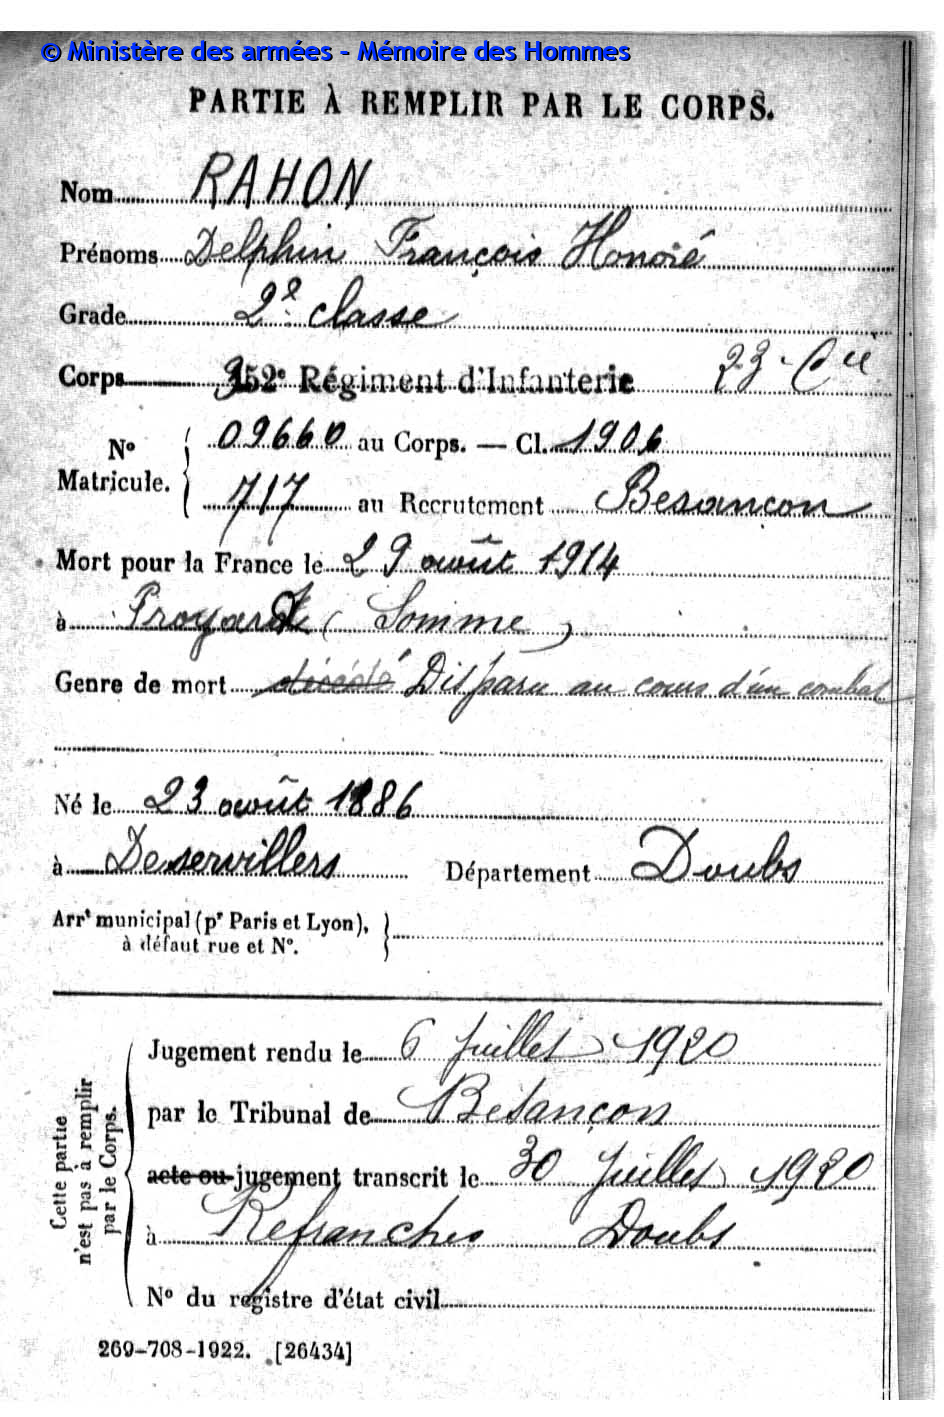 © Ministère des armées - Mémoire des Hommes
PARTIE À REMPLIR PAR LE CORPS.
Nom RAHON
Prénoms Delphin François Honoré
Grade 2e classe
Corps 352e Régiment d'Infanterie 23 Cie
No Matricule. { 09660 au Corps. — Cl. 1906
717 au Recrutement Besançon
Mort pour la France le 29 août 1914
à Proyart (Somme)
Genre de mort décédé Disparu au cours d'un combat
Né le 23 août 1886
à Deservillers Département Doubs
Arrt municipal (pr Paris et Lyon),
à défaut rue et No.
Cette partie n'est pas à remplir par le Corps.
Jugement rendu le 6 juillet 1920
par le Tribunal de Besançon
acte ou jugement transcrit le 30 juillet 1920
à Refranche Doubs
No du registre d'état civil
269-708-1922. [26434]